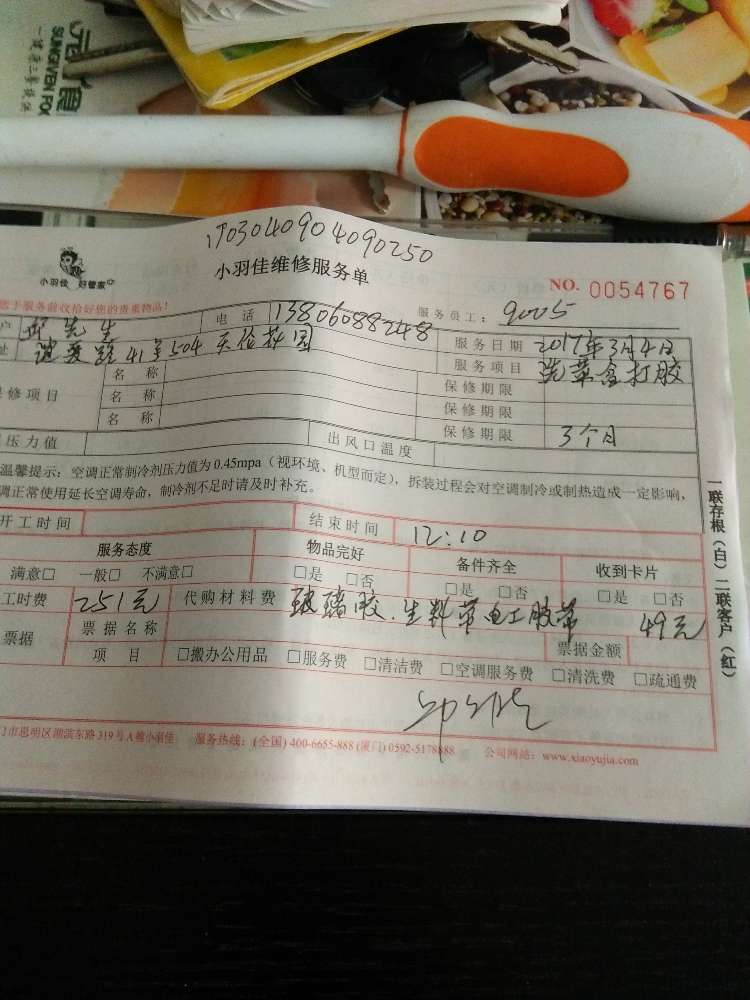 元食
一號御工養提供
SUNGIVEN FOO
1703040904090250
小羽佳 好管家
小羽佳维修服务单
NO. 0054767
您于服务前收拾好您的贵重物品!
服务员工: 9005
户 邱先生 电话 13806088248 服务日期 2017年3月4日
址 41号504天伦花园 服务项目 洗菜盒打胶
保修项目 名称 保修期限
名称 保修期限
名称 保修期限 3个月
压力值 出风口温度
温馨提示: 空调正常制冷剂压力值为0.45mpa(视环境、机型而定),拆装过程会对空调制冷或制热造成一定影响,
调正常使用延长空调寿命,制冷剂不足时请及时补充。
开工时间 结束时间 12:10
服务态度 物品完好 备件齐全 收到卡片
满意□ 一般□ 不满意□ □是 □否 □是 □否 □是 □否
工时费 251元 代购材料费 玻璃胶.生料带电工胶带 49元
票据 票据名称 票据金额
项目 □搬办公用品 □服务费 □清洁费 □空调服务费 □清洗费 □疏通费
门市思明区湖滨东路319号A幢小羽佳 服务热线: (全国) 400-6655-888 (厦门) 0592-5178888 公司网站: www.xiaoyujia.com
一联存根(白) 二联客户(红)